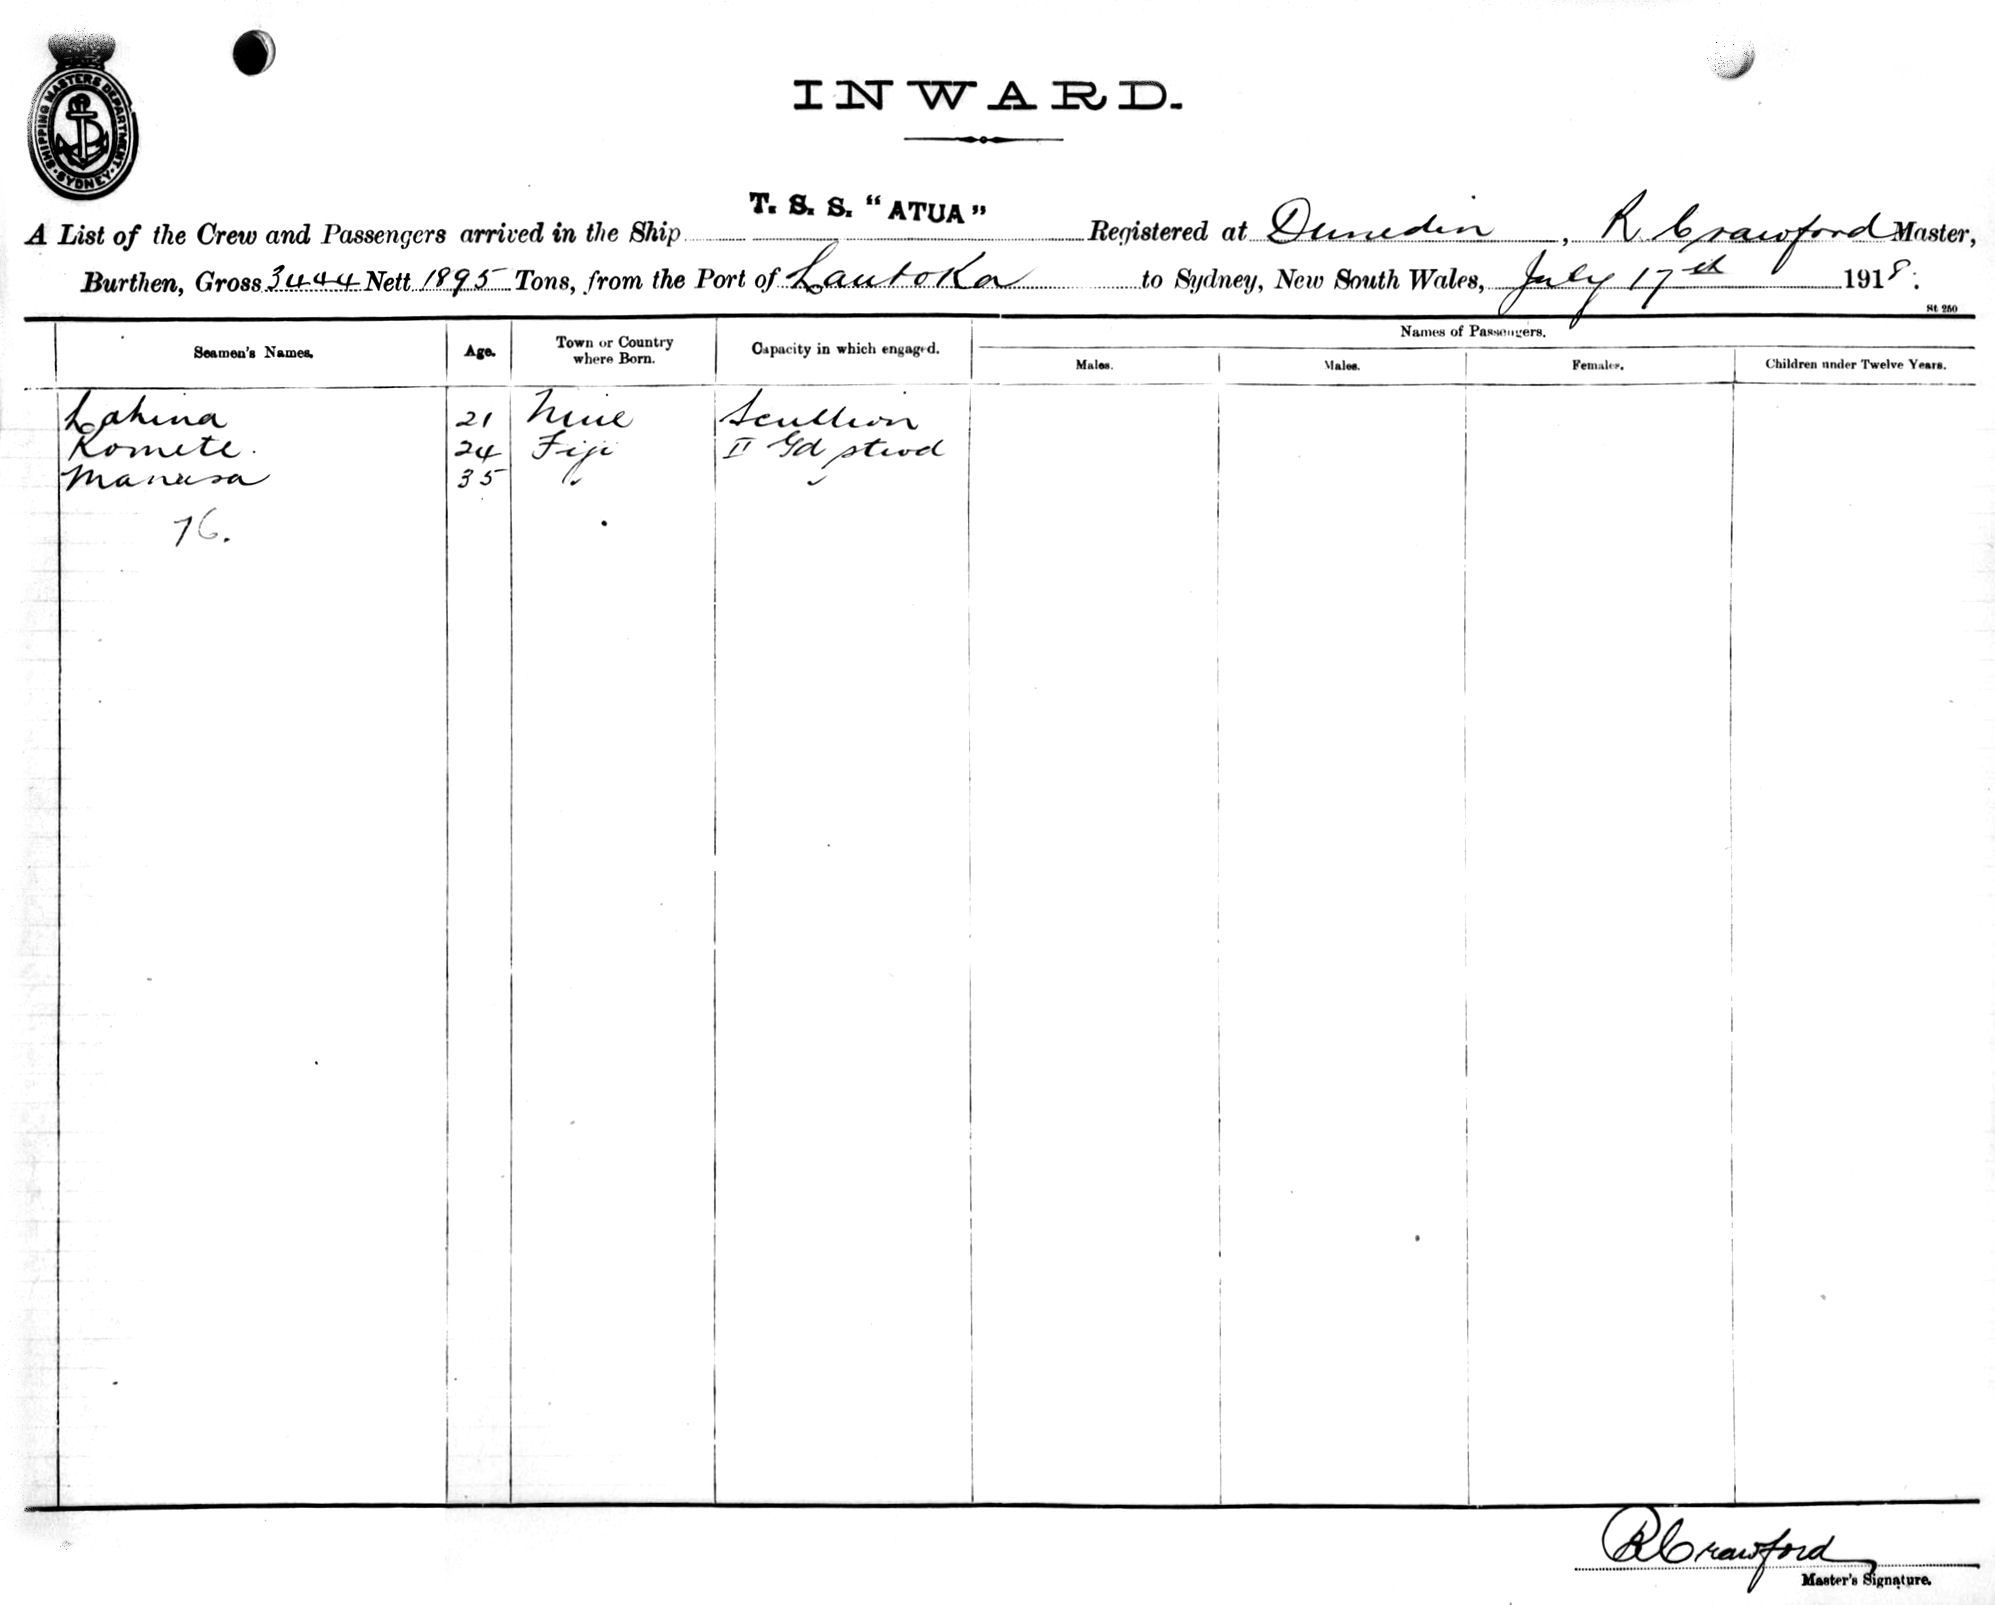 SHIPPING MASTERS DEPARTMENT
SYDNEY
INWARD.
T. S. S. "ATUA"
A List of the Crew and Passengers arrived in the Ship Registered at Dunedin, R Crawford Master,
Burthen, Gross 3444 Nett 1895 Tons, from the Port of Lautoka to Sydney, New South Wales, July 17th 1918.
St 250
Seamen's Names. Age. Town or Country where Born. Capacity in which engaged. Names of Passengers.
Males. Males. Females. Children under Twelve Years.
Lahina 21 Niue Scullion
Komete. 24 Fiji II Gd stwd
Manasa 35 " "
76.
R Crawford
Master's Signature.